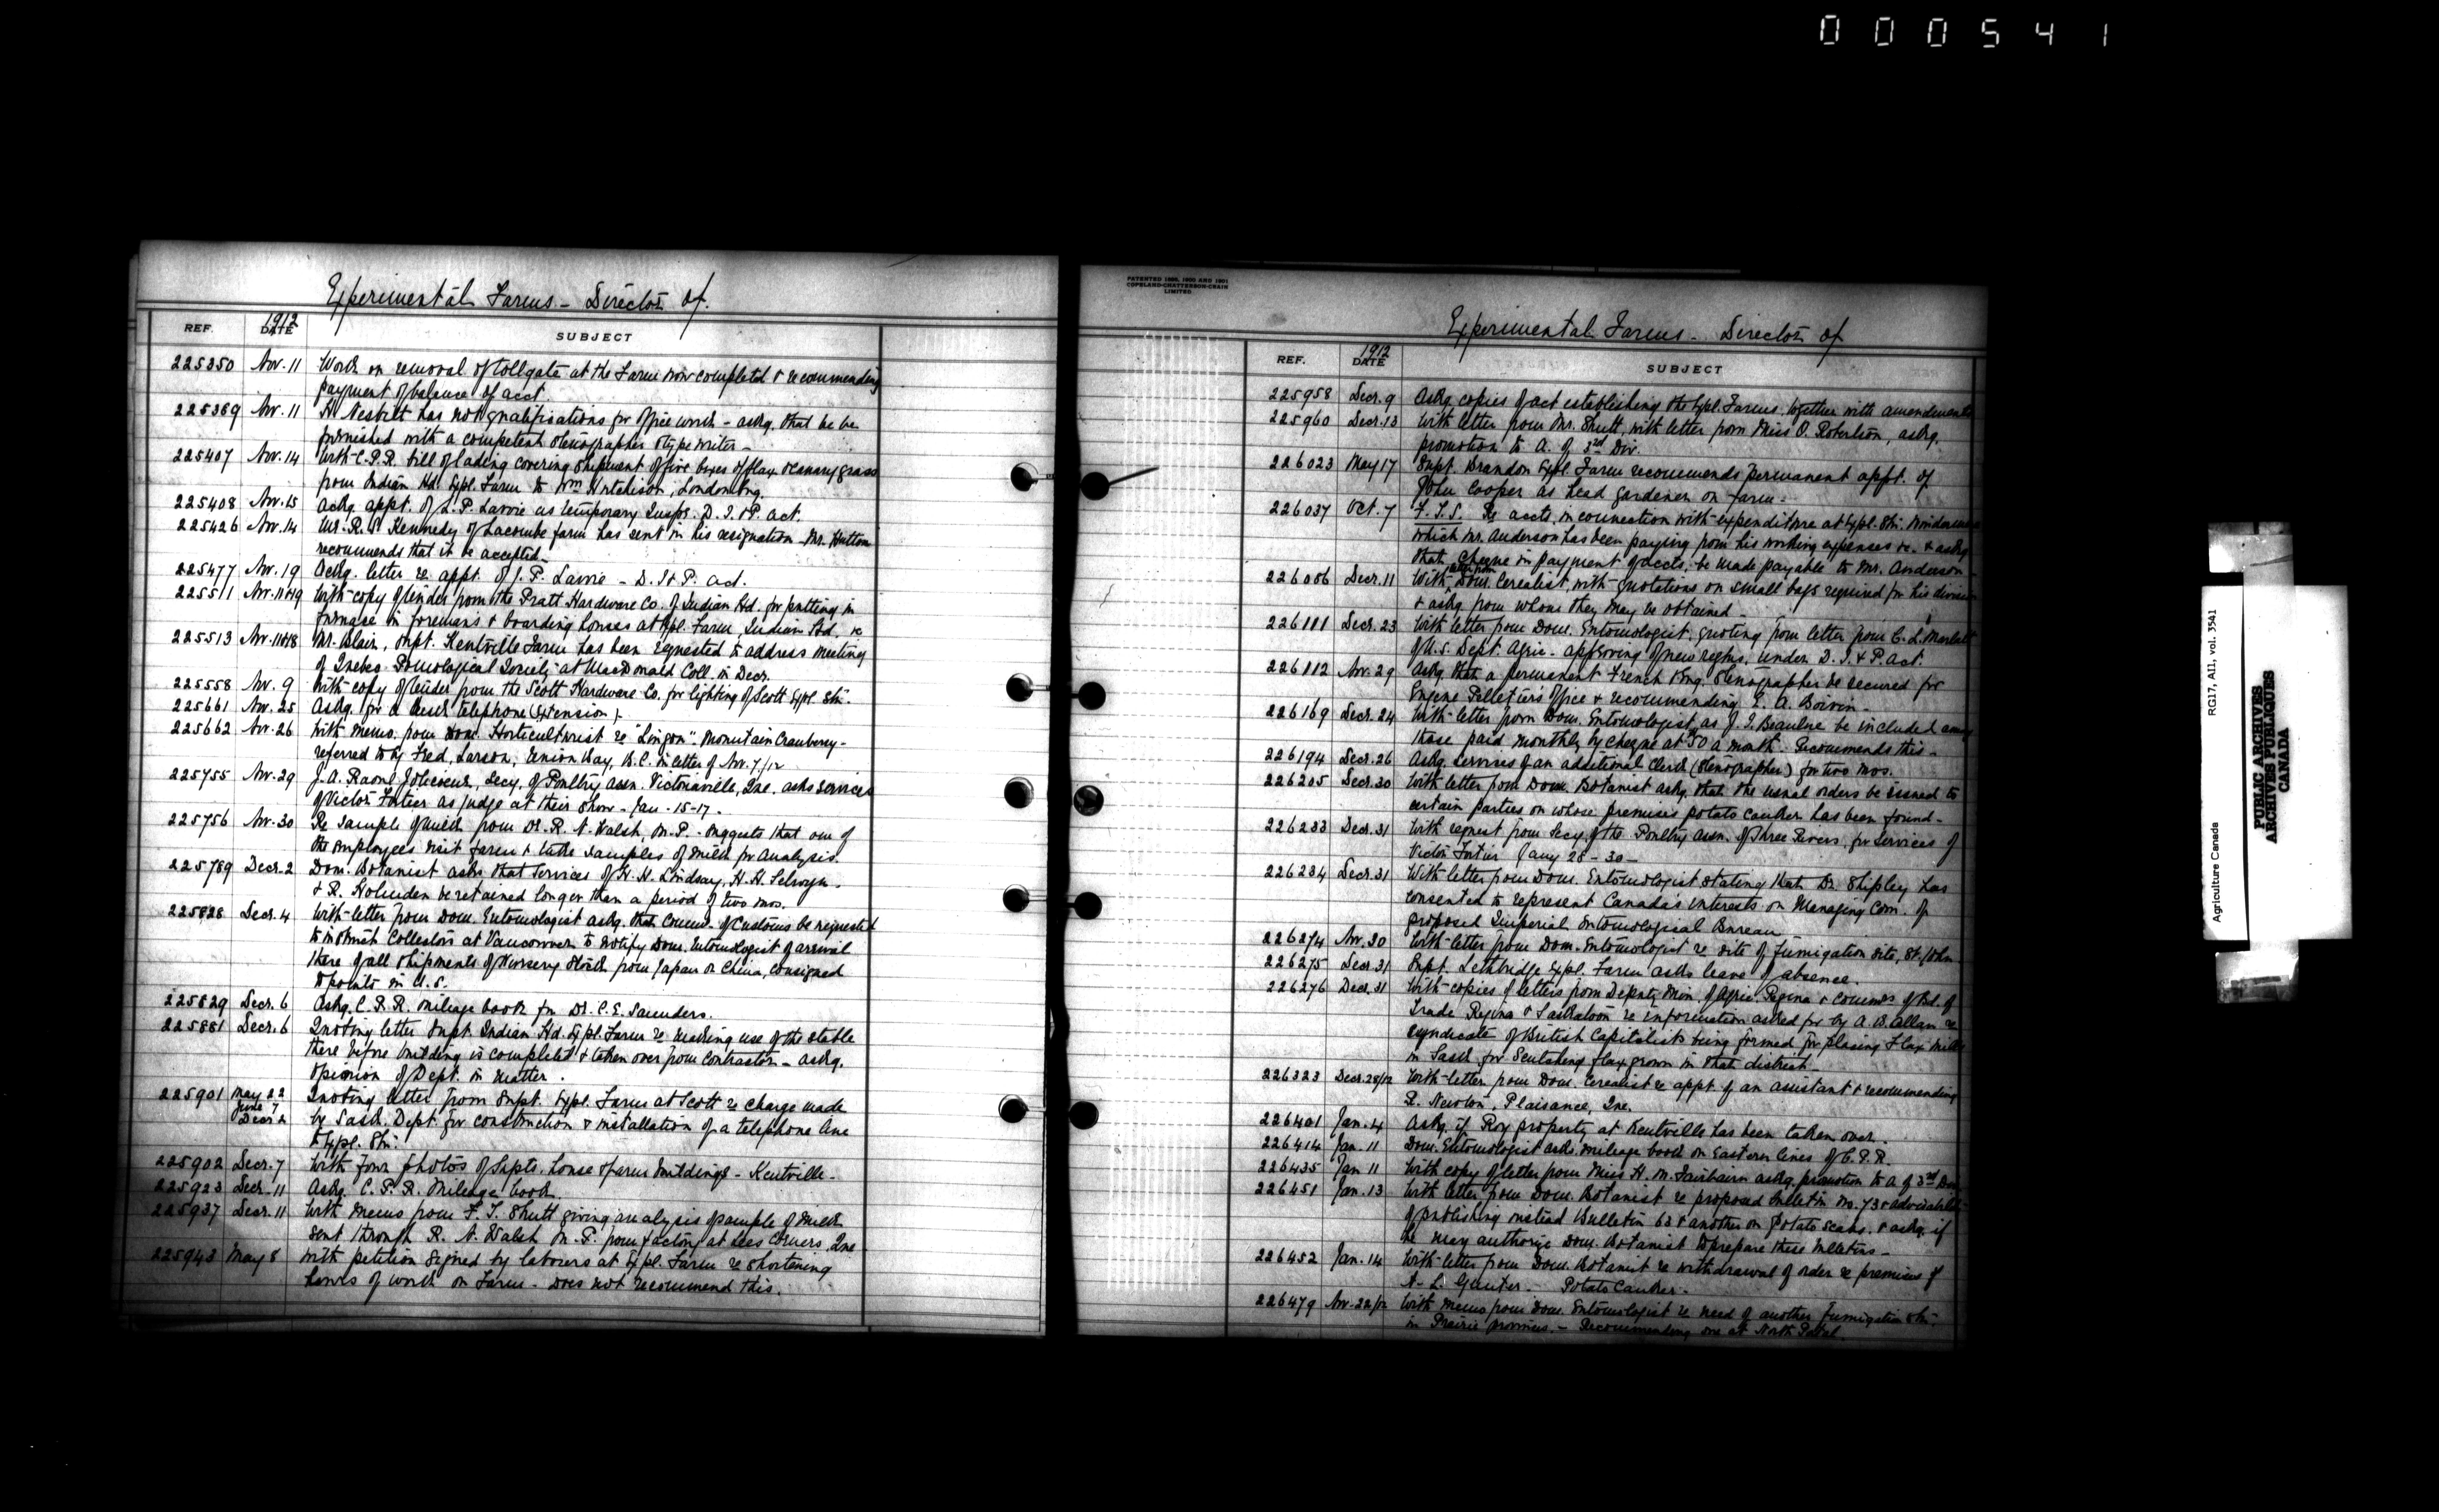 000541
Experimental Farms - Director of.
REF. 1912 DATE SUBJECT
225350 Nov. 11 Work on removal of tollgate at the Farm now completed & recommending
payment of balance of acct.
225369 Nov. 11 H. Nesbitt has not qualifications for office work - askg. that he be
furnished with a competent stenographer & typewriter -
225407 Nov. 14 With C.P.R. bill of lading covering shipment of five boxes of flax & canary grass
from Indian Hd. Expl. Farm to Wm Hutchison, London Eng.
225408 Nov. 15 Askg. appt. of L.P. Lavoie as temporary Inspr. D.I.&P. act.
225426 Nov. 14 Mr. R.S. Kennedy of Lacombe farm has sent in his resignation - Mr. Hutton
recommends that it be accepted.
225477 Nov. 19 Askg. letter re appt. of J.P. Lavoie - D.I.&P. act.
225511 Nov. 11&19 With copy of tender from the Pratt Hardware Co. of Indian Hd. for putting in
furnace in foremans & boarding houses at Expl. Farm, Indian Hd., &c
225513 Nov. 11&18 Mr. Blair, Supt. Kentville Farm has been requested to address meeting
of Quebec Pomological Society at MacDonald Coll. in Decr.
225558 Nov. 9 With copy of tender from the Scott Hardware Co. for lighting of Scott Expl. Stn.
225661 Nov. 25 Askg. for a desk telephone (Extension).
225662 Nov. 26 With memo. from Dom. Horticulturist re "Lingon". Mountain Cranberry -
referred to by Fred, Larson, Union Bay, B.C. in letter of Nov. 7/12
225755 Nov. 29 J.A. Raoul Jolicoeur, Secy. of Poultry Assn. Victoriaville, Que. asks services
of Victor Fortier as judge at their show - Jan. 15-17.
225756 Nov. 30 Re sample of milk from Dr. R.N. Walsh, M.P. - suggests that one of
the employees visit farm & take samples of milk for analysis.
225789 Decr. 2 Dom. Botanist asks that services of H.H. Lindsay, H.H. Selwyn
& R. Holmden be retained longer than a period of two mos.
225828 Decr. 4 With letter from Dom. Entomologist askg. that Commr. of Customs be requested
to instruct Collectors at Vancouver to notify Dom. Entomologist of arrival
there of all shipments of Nursery Stock from Japan or China, consigned
to points in U.S.
225829 Decr. 6 Askg. C.P.R. mileage book for Dr. C.E. Saunders.
225881 Decr. 6 Quoting letter Supt. Indian Hd. Expl. Farm re making use of the stable
there before building is completed & taken over from contractor - askg.
opinion of Dept. in matter.
225901 May 22 Quoting letter from Supt. Expl. Farm at Scott re charge made
June 7
Decr 2 by Sask. Dept. for construction & installation of a telephone line
to Expl. Stn.
225902 Decr. 7 With four photos of Supts. house & farm buildings - Kentville -
225923 Decr. 11 Askg. C.P.R. Mileage book.
225937 Decr. 11 With memo from F.T. Shutt giving analysis of sample of milk
sent through R.N. Walsh M.P. from factory at Lees Corners, Que
225943 May 8 With petition signed by laborers at Expl. Farm re shortening
hours of work on Farm - does not recommend this.
PATENTED 1896, 1900 AND 1901
COPELAND-CHATTERSON-CRAIN
LIMITED
Experimental Farms - Director of
REF. 1912 DATE SUBJECT
225958 Decr. 9 Askg. copies of act establishing the Expl. Farms, together with amendments
225960 Decr. 13 With letter from Mr. Shutt, with letter from Miss O. Robertson, askg.
promotion to A. of 3rd Div.
226023 May 17 Supt. Brandon Expl. Farm recommends permanent appt. of
John Cooper as head gardener on farm -
226037 Oct. 7 F.T.S. Re accts. in connection with expenditure at Expl. Stn.
which Mr. Anderson has been paying from his working expenses &c. & askg.
that cheque in payment of accts. be made payable to Mr. Anderson
226086 Decr. 11 With Dom. Cerealist, with quotations on small bags required for his division
& askg. from whom they may be obtained -
226111 Decr. 23 With letter from Dom. Entomologist, quoting from letter from C.L. Marlatt
of U.S. Dept. Agric. - approving of new regtns. under D.I.&P. act.
226112 Nov. 29 Askg. that a permanent French & Eng. stenographer be secured for
Eugene Pelletier's office & recommending E.A. Boivin -
226169 Decr. 24 With letter from Dom. Entomologist, as J.I. Beaulne be included among
those paid monthly by cheque at $50 a month. Recommends this -
226194 Decr. 26 Askg. services of an additional clerk (Stenographer) for two mos.
226205 Decr. 30 With letter from Dom. Botanist askg. that the usual orders be issued to
certain parties on whose premises potato canker has been found -
226233 Decr. 31 With request from Secy. of the Poultry Assn. of Three Rivers, for services of
Victor Fortier Jany 28-30 -
226234 Decr. 31 With letter from Dom. Entomologist stating that Dr. Shipley has
consented to represent Canada's interests on Managing Com. of
proposed Imperial Entomological Bureau
226274 Nov. 30 With letter from Dom. Entomologist re site of fumigation site, St. John
226275 Decr. 31 Supt. Lethbridge Expl. Farm asks leave of absence.
226276 Decr. 31 With copies of letters from Deputy Min. of Agric. Regina & Commrs of Bd. of
Trade Regina & Saskatoon re information asked for by A.B. Allan re
syndicate of British Capitalists being formed for placing Flax Mills
in Sask. for Scutching flax grown in that district -
226323 Decr. 28/12 With letter from Dom. Cerealist re appt. of an assistant & recommending
R. Newton, Plaisance, Que.
226401 Jan. 4 Askg. if Roy property at Kentville has been taken over.
226414 Jan. 11 Dom. Entomologist asks mileage book on Eastern lines of C.P.R.
226435 Jan 11 With copy of letter from Miss H.M. Fairbairn askg. promotion to A of 3rd Div.
226451 Jan. 13 With letter from Dom. Botanist re proposed bulletin No. 73 & advisability
of publishing instead Bulletin 63 & another on Potato Scab. & askg. if
he may authorize Dom. Botanist to prepare these bulletins -
226452 Jan. 14 With letter from Dom. Botanist re withdrawal of order re premises of
N.L. - Potato Canker -
226479 Nov. 22/12 With memo from Dom. Entomologist re need of another fumigation stn.
in Prairie provinces. - Recommending one at North Portal.
Agriculture Canada RG17, A11, vol. 3541
PUBLIC ARCHIVES
ARCHIVES PUBLIQUES
CANADA